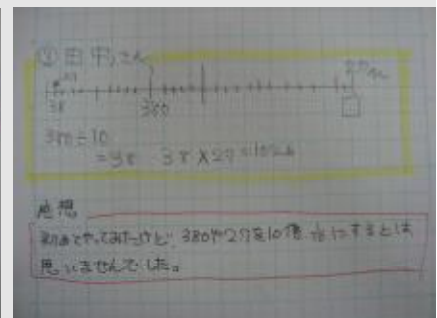 ③田中さん
38 380 □
380÷10
=38 38×27=1026
感想
初めてやってみたけど、380や27を10倍、1/10にするとは
思いませんでした。